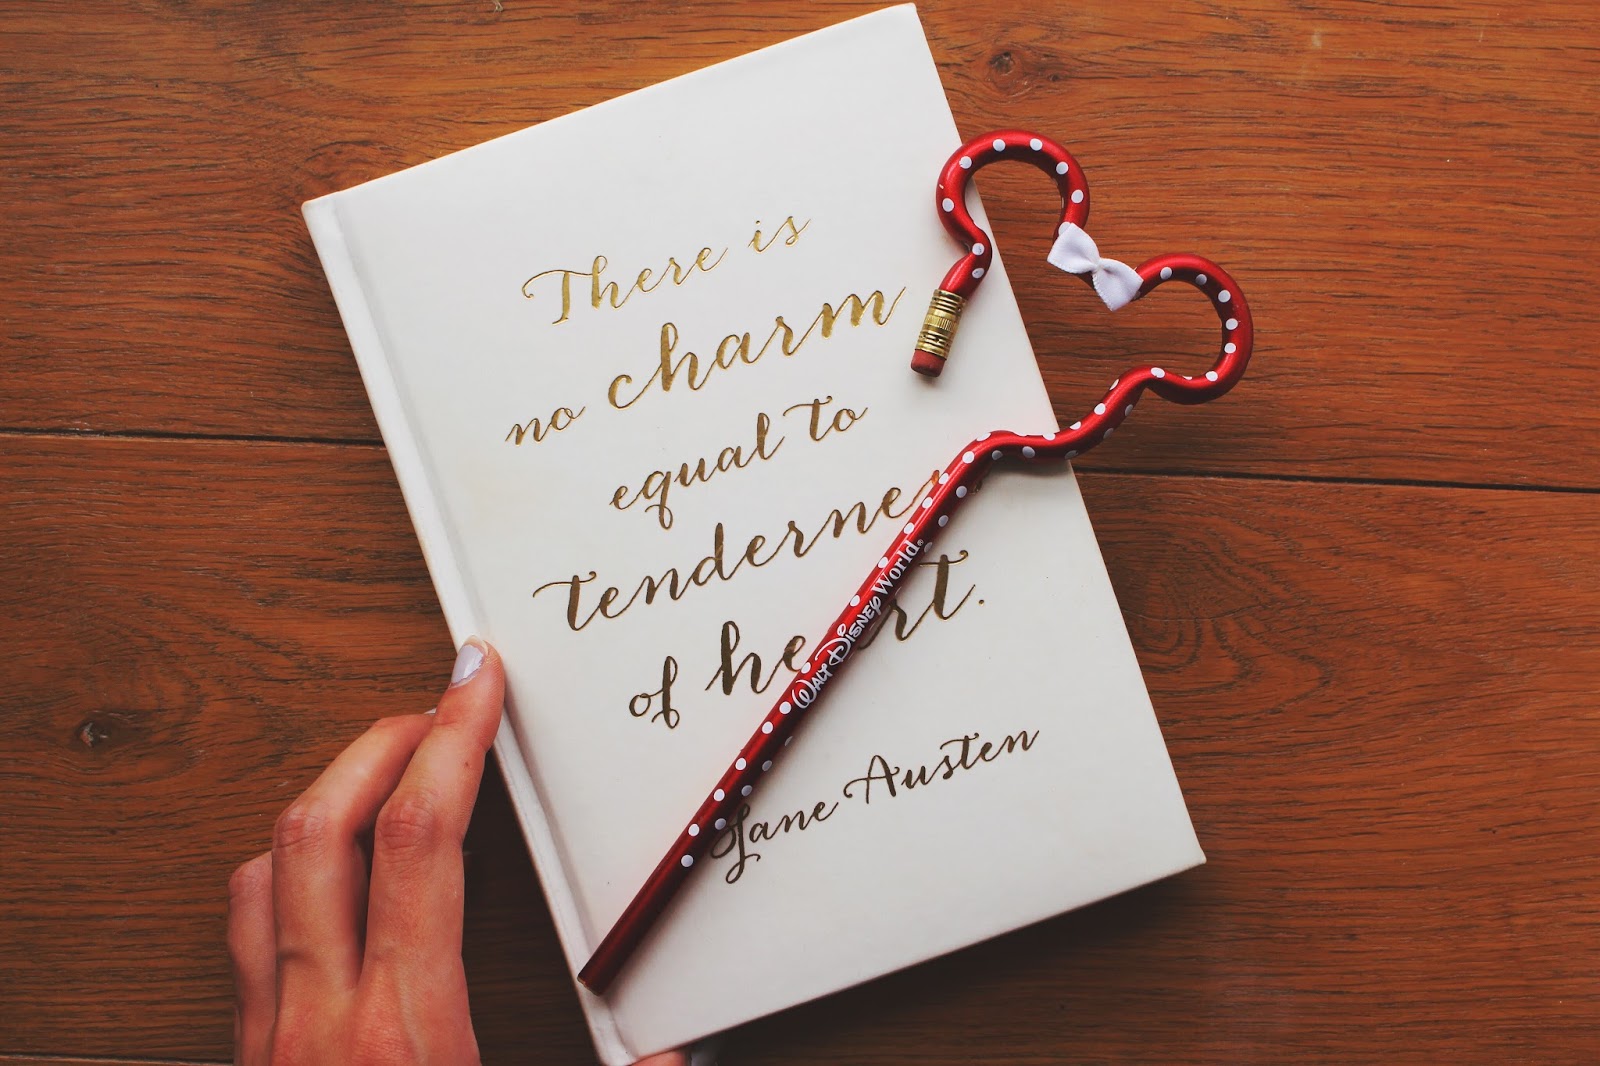 There is
no charm
equal to
tenderness
of heart.
Jane Austen
Walt Disney World®